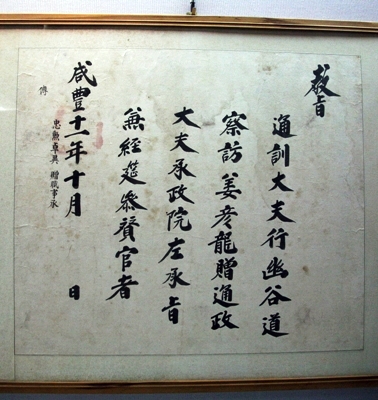 教旨
通訓大夫行幽谷道
察訪姜彦龍贈通政
大夫承政院左承旨
兼經筵參贊官者
咸豊十一年十月 日
忠勳卓異 贈職事承
傳